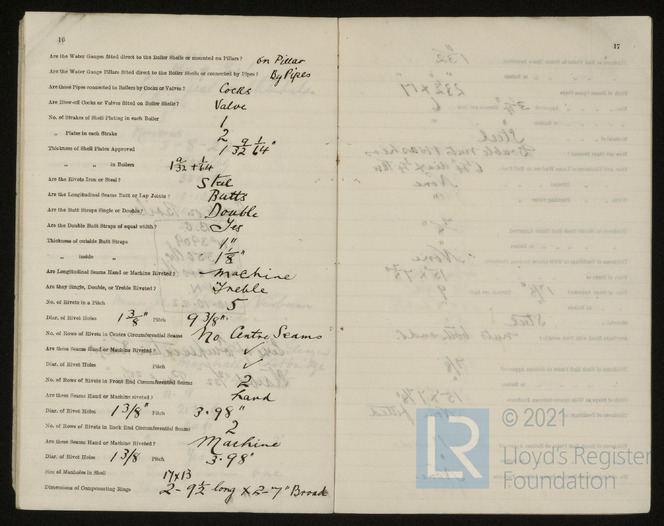 16
Are the Water Gauges fitted direct to the Boiler Shells or mounted on Pillars? on Pillar
Are the Water Gauge Pillars fitted direct to the Boiler Shells or connected by Pipes? By Pipes
Are these Pipes connected to Boilers by Cocks or Valves? Cocks
Are Blow-off Cocks or Valves fitted on Boiler Shells? Valve
No. of Strakes of Shell Plating in each Boiler 1
„ Plates in each Strake 2
Thickness of Shell Plates Approved 1 9/32 1/64"
„ „ in Boilers 1 9/32 + 1/64
Are the Rivets Iron or Steel? Steel
Are the Longitudinal Seams Butt or Lap Joints? Butts
Are the Butt Straps Single or Double? Double
Are the Double Butt Straps of equal width? Yes
Thickness of outside Butt Straps 1"
„ inside „ 1 1/8"
Are Longitudinal Seams Hand or Machine Riveted? Machine
Are they Single, Double, or Treble Riveted? Treble
No. of Rivets in a Pitch 5
Diar. of Rivet Holes 1 3/8" Pitch 9 3/8"
No. of Rows of Rivets in Centre Circumferential Seams No Centre Seams
Are these Seams Hand or Machine Riveted? ✓
Diar. of Rivet Holes Pitch ✓
No. of Rows of Rivets in Front End Circumferential Seams 2
Are these Seams Hand or Machine riveted? Hand
Diar. of Rivet Holes 1 3/8" Pitch 3.98"
No. of Rows of Rivets in Back End Circumferential Seams 2
Are these Seams Hand or Machine Riveted? Machine
Diar. of Rivet Holes 1 3/8 Pitch 3.98"
Size of Manholes in Shell 17x13
Dimensions of Compensating Rings 2 - 9 1/2 long x 2-7" Broad
17
© 2021
LR
Lloyd's Register
Foundation